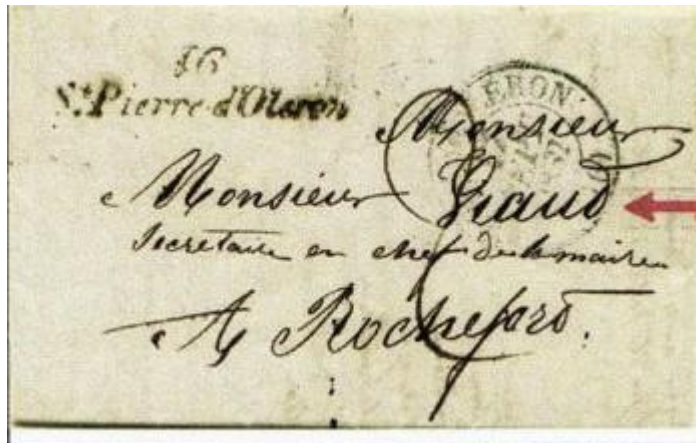 16
St Pierre d'Oleron
ERON
Monsieur
Monsieur Viaud
Secretaire en chef de la mairie
A Rochefort.